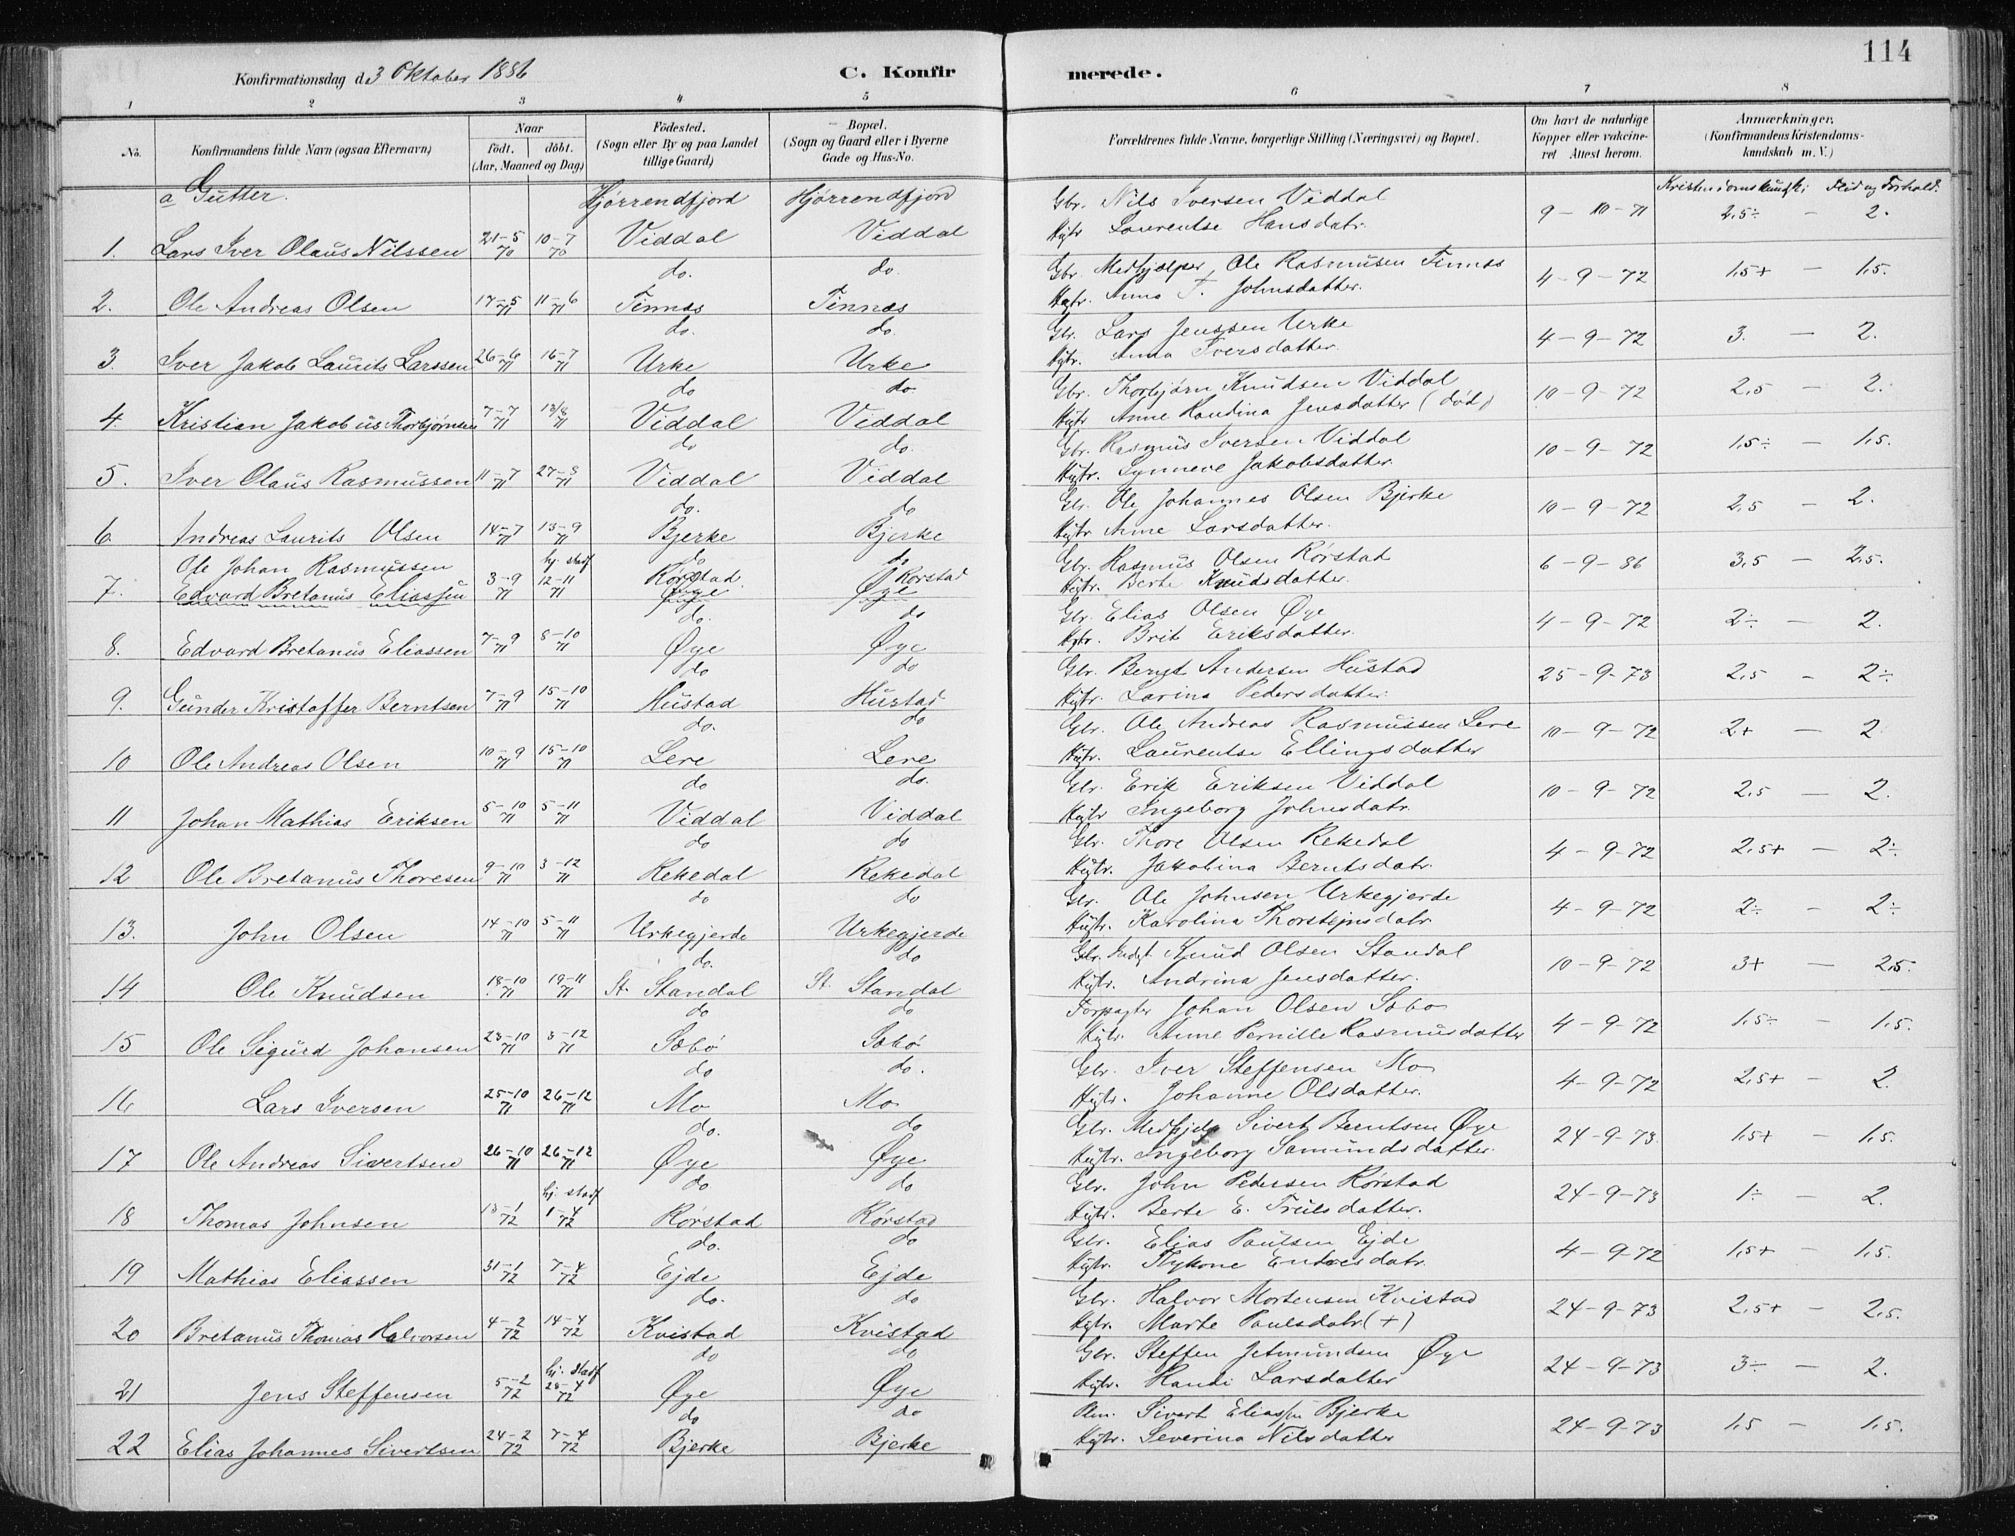 114
Konfirmationsdag d. 3 Oktober 1886
C. Konfirmerede.
1 2 3 4 5 6 7 8
No. Konfirmandens fulde Navn (ogsaa Efternavn) Naar födt. döbt. (Aar, Maaned og Dag) Födested. (Sogn eller By og paa Landet tillige Gaard) Bopæl. (Sogn og Gaard eller i Byerne Gade og Hus-No. Forældrenes fulde Navne, borgerlige Stilling (Næringsvei) og Bopæl. Om havt de naturlige Kopper eller vakcineret Attest herom. Anmærkninger. (Konfirmandens Kristendomskundskab m. V.)
a Gutter. Hjørrendfjord Hjørrendfjord Kristendomskundsk; Flid og Forhold.
1. Lars Iver Olaus Nilssen 21-5 70 10-7 70 Viddal Viddal Gbr. Nils Iversen Viddal Hstr Laurentse Hansdatr. 9-10-71 2,5÷ - 2.
2. Ole Andreas Olsen 17-5 71 11-6 71 do. Finnes do. Finnes Gbr. Medhjælper Ole Rasmusen Finnes Hstr. Anna T. Johnsdatter. 4-9-72 1,5+ - 1,5.
3. Iver Jakob Laurits Larssen 26-6 71 16-7 71 do. Urke do. Urke Gbr. Lars Jenssen Urke Hstr. Anna Iversdatter. 4-9-72 3. - 2.
4. Kristian Jakobus Thorbjørnsen 7-7 71 13/8 71 do Viddal do. Viddal Gbr. Thorbjørn Knudsen Viddal Hstr Anne Handina Jensdatter (død) 10-9-72 2,5 - 2.
5. Iver Olaus Rasmussen 11-7 71 27-8 71 do Viddal do. Viddal Gbr. Rasmus Iversen Viddal Hstr. Synneve Jakobsdatter. 10-9-72 1,5÷ - 1,5.
6. Andreas Laurits Olsen 14-7 71 13-9 71 do. Bjerke do Bjerke Gbr. Ole Johannes Olsen Bjerke Hstr Anne Larsdatter. 10-9-72 2,5 - 2.
7. Ole Johan Rasmussen Edvard Bretanus Eliassen 3-9 71 hj. stadf 12-11 71 do Rørstad Øye do Rørstad Øye Gbr. Rasmus Olsen Rørstad Hstr. Berte Knudsdatter. 6-9-86 3,5 - 2,5.
8. Edvard Bretanus Eliassen 7-9 71 8-10 71 do. Øye do Øye Gbr. Elias Olsen Øye Hstr. Brit Eriksdatter. 4-9-72 2÷ - 2.
9. Gunder Kristoffer Berntsen 7-9 71 15-10 71 do Hustad do Hustad Gbr. Bernt Andersen Hustad Hstr. Larina Pedersdatter. 25-9-73 2,5 - 2÷
10 Ole Andreas Olsen 10-9 71 15-10 71 do. Lere do Lere Gbr. Ole Andreas Rasmussen Lere Hstr. Laurentse Ellingsdatter 10-9-72 2+ - 2
11 Johan Mathias Eriksen 5-10 71 5-11 71 do Viddal do. Viddal Gbr. Erik Eriksen Viddal Hstr Ingeborg Johnsdatr. 10-9-72 2,5 - 2.
12 Ole Bretanus Thoresen 9-10 71 3-12 71 do Rekedal do Rekedal Gbr. Thore Olsen Rekedal Hstr. Jakobina Berntsdatr. 4-9-72 2,5+ - 2÷
13. John Olsen 14-10 71 5-11 71 do Urkegjerde do Urkegjerde Gbr. Ole Johnsen Urkegjerde Hstr. Karolina Thorstejnsdatr 4-9-72 2÷ - 2÷
14 Ole Knudsen 18-10 71 19-11 71 do. St. Standal do St. Standal Gbr. Knud Olsen Standal Hstr. Andrina Jensdatter. 10-9-72 3+ - 2,5.
15 Ole Sigurd Johansen 23-10 71 3-12 71 do Sæbø do Sæbø Forpagter Johan Olsen Sæbø Hstr. Anne Pernille Rasmusdatter 4-9-72 1,5÷ - 1,5.
16 Lars Iversen 25-10 71 26-12 71 do Mo do. Mo Gbr. Iver Steffensen Mo Hstr. Johanne Olsdatter. 4-9-72 2,5+ - 2.
17 Ole Andreas Sivertsen 26-10 71 26-12 71 do. Øye do Øye Gbr. Medhjelp Sivert Berntsen Øye Hstr. Ingeborg Samundsdatter. 24-9-73 1,5+ - 1,5.
18 Thomas Johnsen 13-1 72 hj. stadf 1-4 72 do Rørstad do Rørstad Gbr. John Pedersen Rørstad Hstr. Berte E. Trulsdatter. 24-9-73 1÷ - 2.
19 Mathias Eliassen 31-1 72 7-4 72 do. Ejde do Ejde Gbr. Elias Paulsen Ejde Hstr. Endresdatr. 4-9-72 1,5+ - 1,5.
20 Bretanus Thomas Halvorsen 4-2 72 14-4 72 do. Kvistad do Kvistad Gbr. Halvor Mortensen Kvistad Hstr. Marte Paulsdatr (+) 24-9-73 2,5+ - 2,5.
21 Jens Steffensen 5-2 72 hj. stadf 28-4 72 do Øye do Øye Gbr. Steffen Jetmundsen Øye Hstr. Randi Larsdatter 24-9-73 3÷ - 2.
22 Elias Johannes Sivertsen 24-2 72 7-4 72 do Bjerke do Bjerke Plm. Sivert Eliassen Bjerke Hstr. Severina Nilsdatter 24-9-73 1,5 - 1,5.